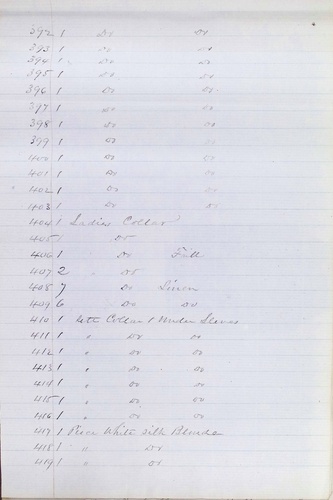 392 1 Do Do
393 1 Do Do
394 1 Do Do
395 1 Do Do
396 1 Do Do
397 1 Do Do
398 1 Do Do
399 1 Do Do
400 1 Do Do
401 1 Do Do
402 1 Do Do
403 1 Do Do
404 1 Ladies Collar
405 1 Do
406 1 " Do Fall
407 2 " Do
408 7 " Do Linen
409 6 Do Do
410 1 Sett Collar & Under Sleeves
411 1 " Do Do
412 1 " Do Do
413 1 " Do Do
414 1 " Do Do
415 1 " Do Do
416 1 " Do Do
417 1 Piece White Silk Blonde
418 1 " Do
419 1 " Do